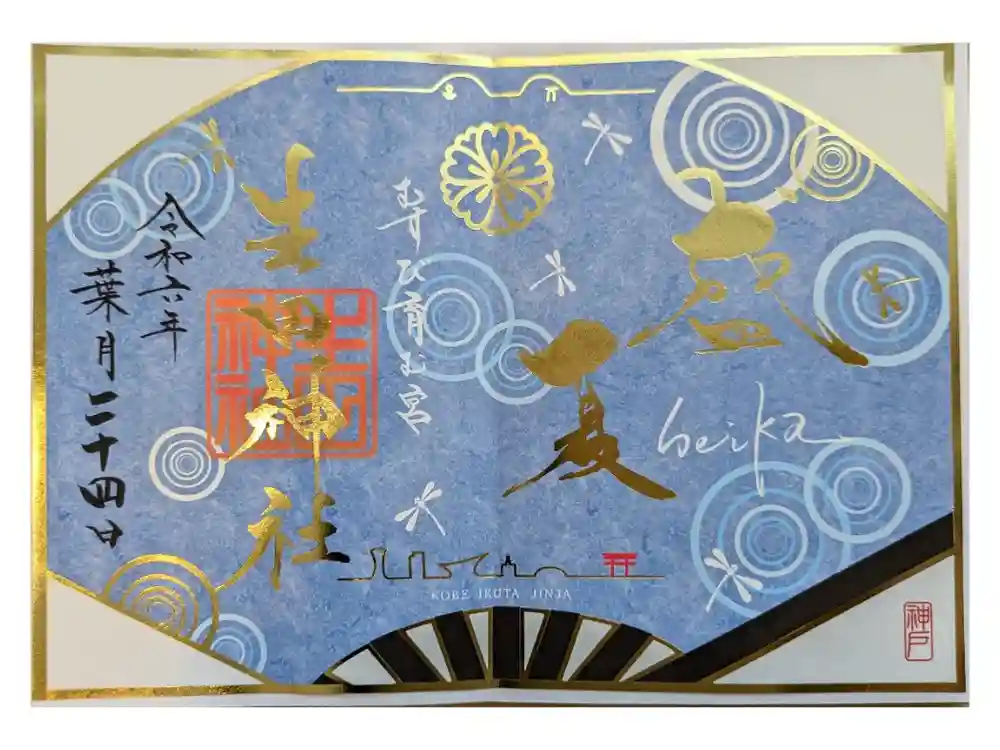 盛夏
seika
むすび育む宮
生田神社
生田神社
令和六年
葉月二十四日
KOBE IKUTA JINJA
神戸